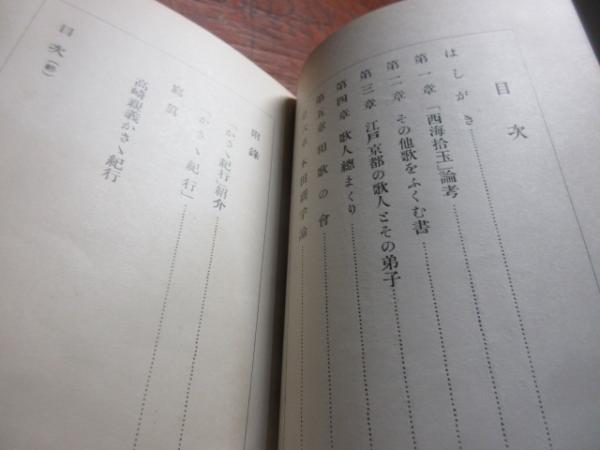 目次
はしがき
第一章 「西海拾玉」論考
第二章 その他歌をふくむ書
第三章 江戸京都の歌人とその弟子
第四章 歌人總まくり
第五章 和歌の會
本田親孚論
附録
「かさゝ紀行」紹介
「かさゝ紀行」
寫眞
高崎親義かさゝ紀行
目次(終)